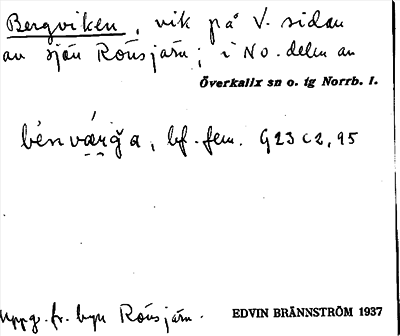 Bergviken, vik på V. sidan
av sjön Rousjärn; i NO. delen av
Överkalix sn o. tg Norrb. l.
bf. fem. G23 c2, 95
Uppg. fr. byn Rousjärn.
EDVIN BRÄNNSTRÖM 1937